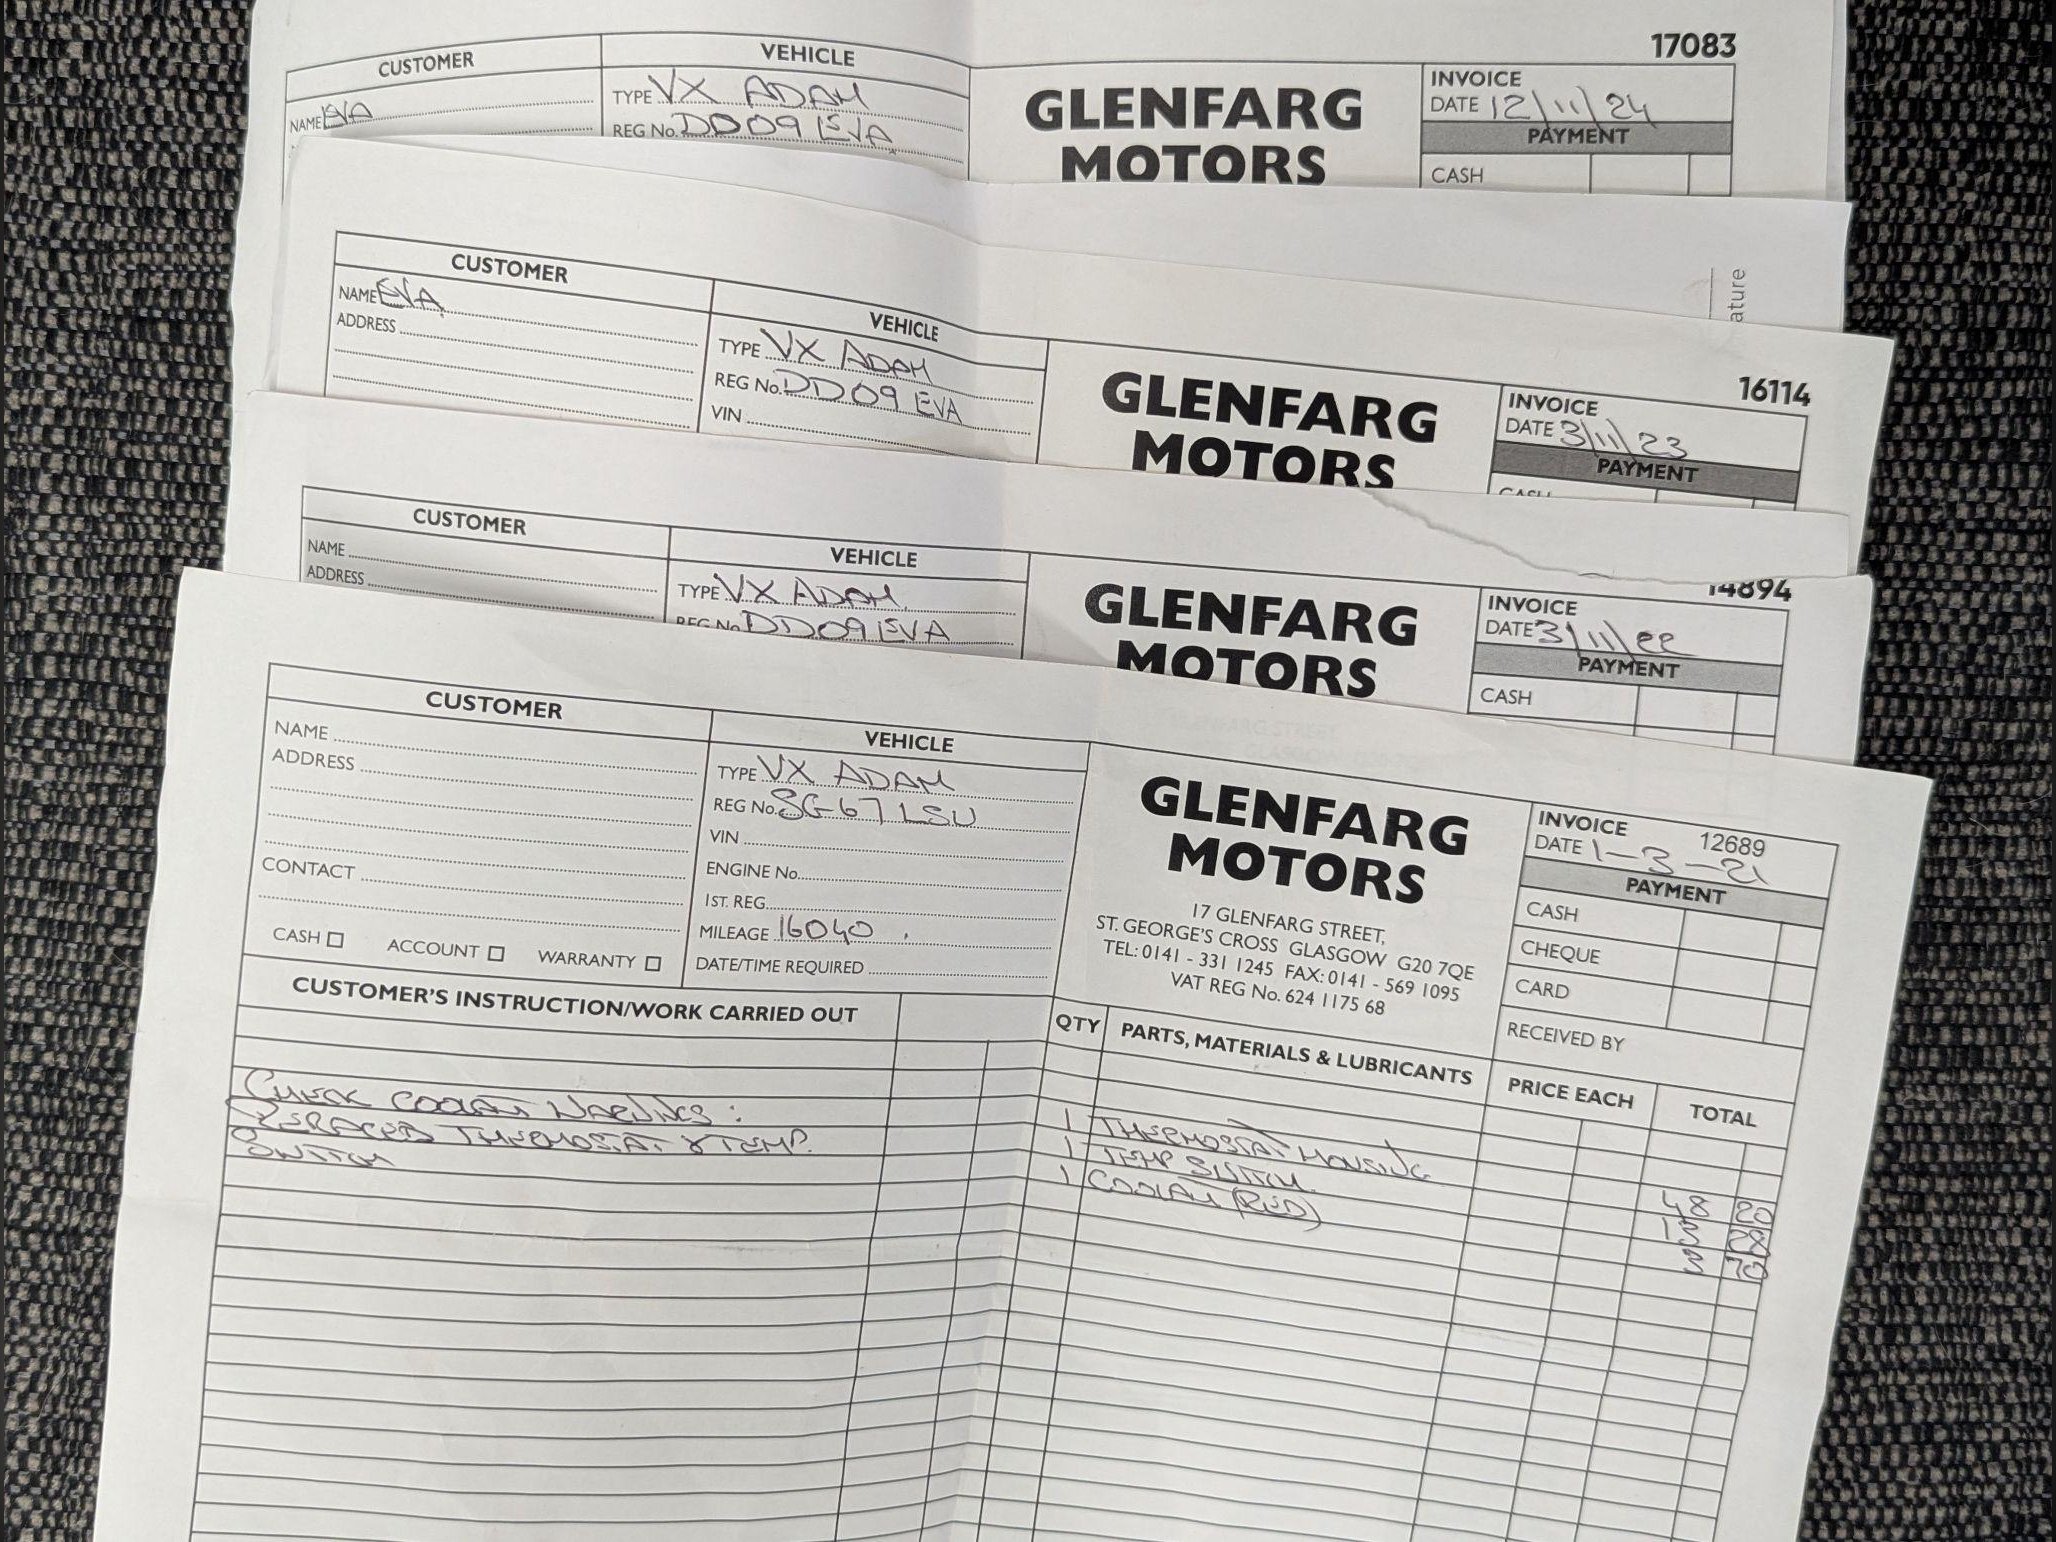 17083
CUSTOMER
VEHICLE
NAME EVA
TYPE VX ADAM
REG No. DD09 EVA
GLENFARG
MOTORS
INVOICE
DATE 12/11/24
PAYMENT
CASH
ature
CUSTOMER
NAME EVA
ADDRESS
VEHICLE
TYPE VX ADAM
REG No. DD09 EVA
VIN
GLENFARG
MOTORS
16114
INVOICE
DATE 3/11/23
PAYMENT
CASH
CUSTOMER
NAME
ADDRESS
VEHICLE
TYPE VX ADAM
REG No. DD09 EVA
GLENFARG
MOTORS
14894
INVOICE
DATE 3/11/22
PAYMENT
CASH
CUSTOMER
NAME
ADDRESS
CONTACT
CASH ACCOUNT WARRANTY
VEHICLE
TYPE VX ADAM
REG No. SG67 LSU
VIN
ENGINE No.
1ST. REG.
MILEAGE 16040
DATE/TIME REQUIRED
GLENFARG
MOTORS
17 GLENFARG STREET,
ST. GEORGE'S CROSS GLASGOW G20 7QE
TEL: 0141 - 331 1245 FAX: 0141 - 569 1095
VAT REG No. 624 1175 68
INVOICE 12689
DATE 1-3-21
PAYMENT
CASH
CHEQUE
CARD
RECEIVED BY
CUSTOMER'S INSTRUCTION/WORK CARRIED OUT
QTY PARTS, MATERIALS & LUBRICANTS PRICE EACH TOTAL
CHECK COOLANT WARNINGS:
REPLACED THERMOSTAT & TEMP.
SWITCH
1 THERMOSTAT HOUSING 48 20
1 TEMP SWITCH 28
1 COOLANT (RED) 70